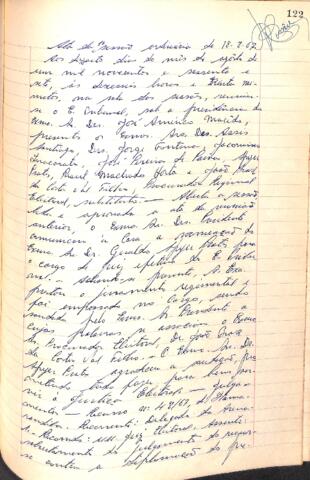 122
Ata da Sessão ordinária de 18-8-67
Aos dezoito dias do mês de agôsto de
um mil novecentos e sessenta e
sete, às dezesseis horas e trinta mi-
nutos, na sala das sessões, reuniu-
se o E. Tribunal, sob a presidência do
Exmo. Sr. Des. José Américo Macêdo,
presentes os Exmos. Srs. Des. Assis
Santiago, Drs. Jorge Fontana, Jacomino
Inacarato, José Pereira de Paiva,
Prata, Raul Machado Horta e João Braz
da Costa Val Filho, Procurador Regional
Eleitoral, substituto. — Aberta a sessão,
lida e aprovada a ata da reunião
anterior, o Exmo. Sr. Des. Presidente
comunicou à Casa a nomeação do
Exmo. Sr. Dr. Geraldo Prata para
o cargo de Juiz efetivo do E. Tribu-
nal. — Achando-se presente, S. Exa.
prestou o juramento regimental e
foi empossado no cargo, sendo
saudado pelo Exmo. Sr. Presidente a
cujas palavras se associou o Exmo.
Sr. Procurador Eleitoral, Dr. João Braz
da Costa Val Filho. — O Exmo. Sr. Dr.
Prata agradeceu a saudação, pro-
metendo tudo fazer para bem ser-
vir à Justiça Eleitoral. — Julga-
mentos — Recurso nº 48/67, de
Recorrente: Delegado da Arena.
Recorrido: MM. Juiz Eleitoral. Assunto:
do julgamento do recur-
so contra a do